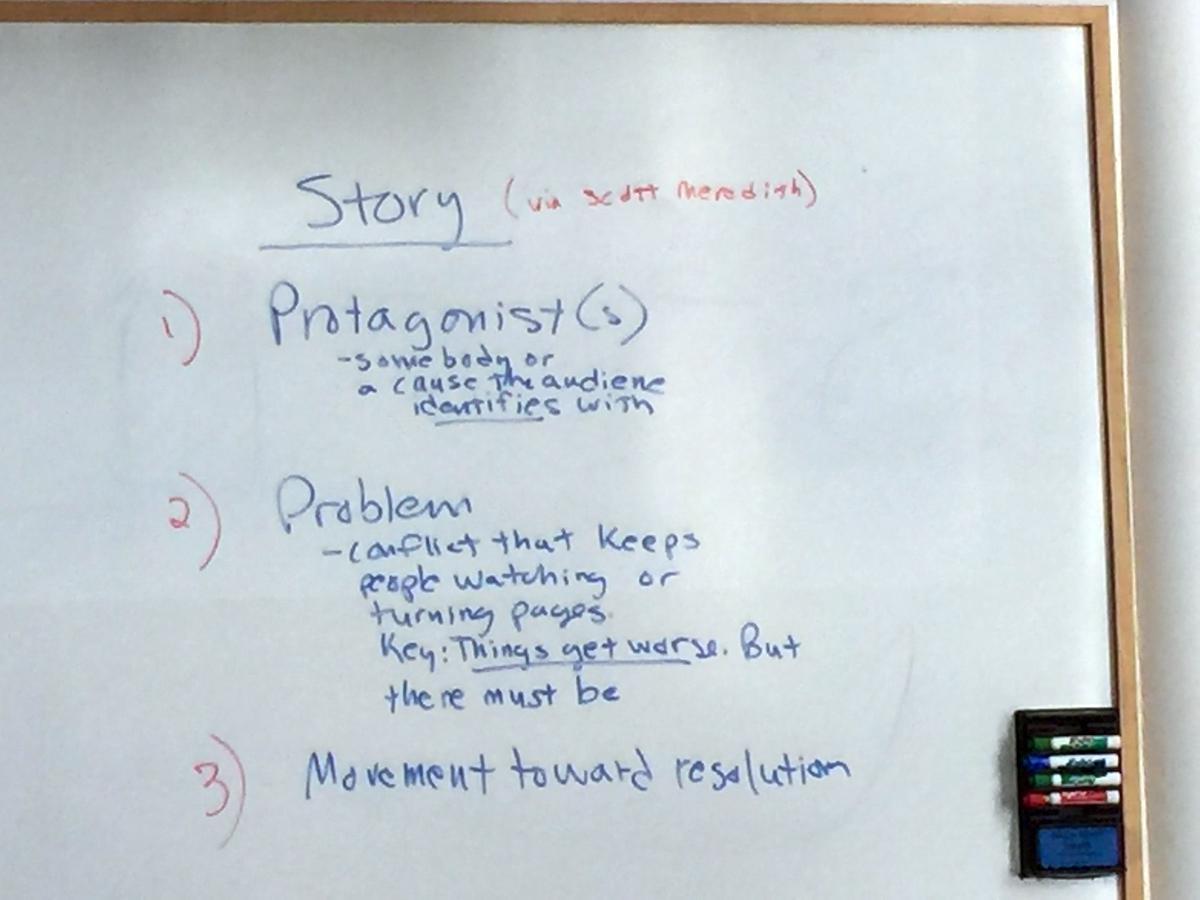 Story (via Scott Meredith)
1) Protagonist(s)
- somebody or
a cause the audiene
identifies with
2) Problem
- conflict that keeps
people watching or
turning pages.
Key: Things get worse. But
there must be
3) Movement toward resolution